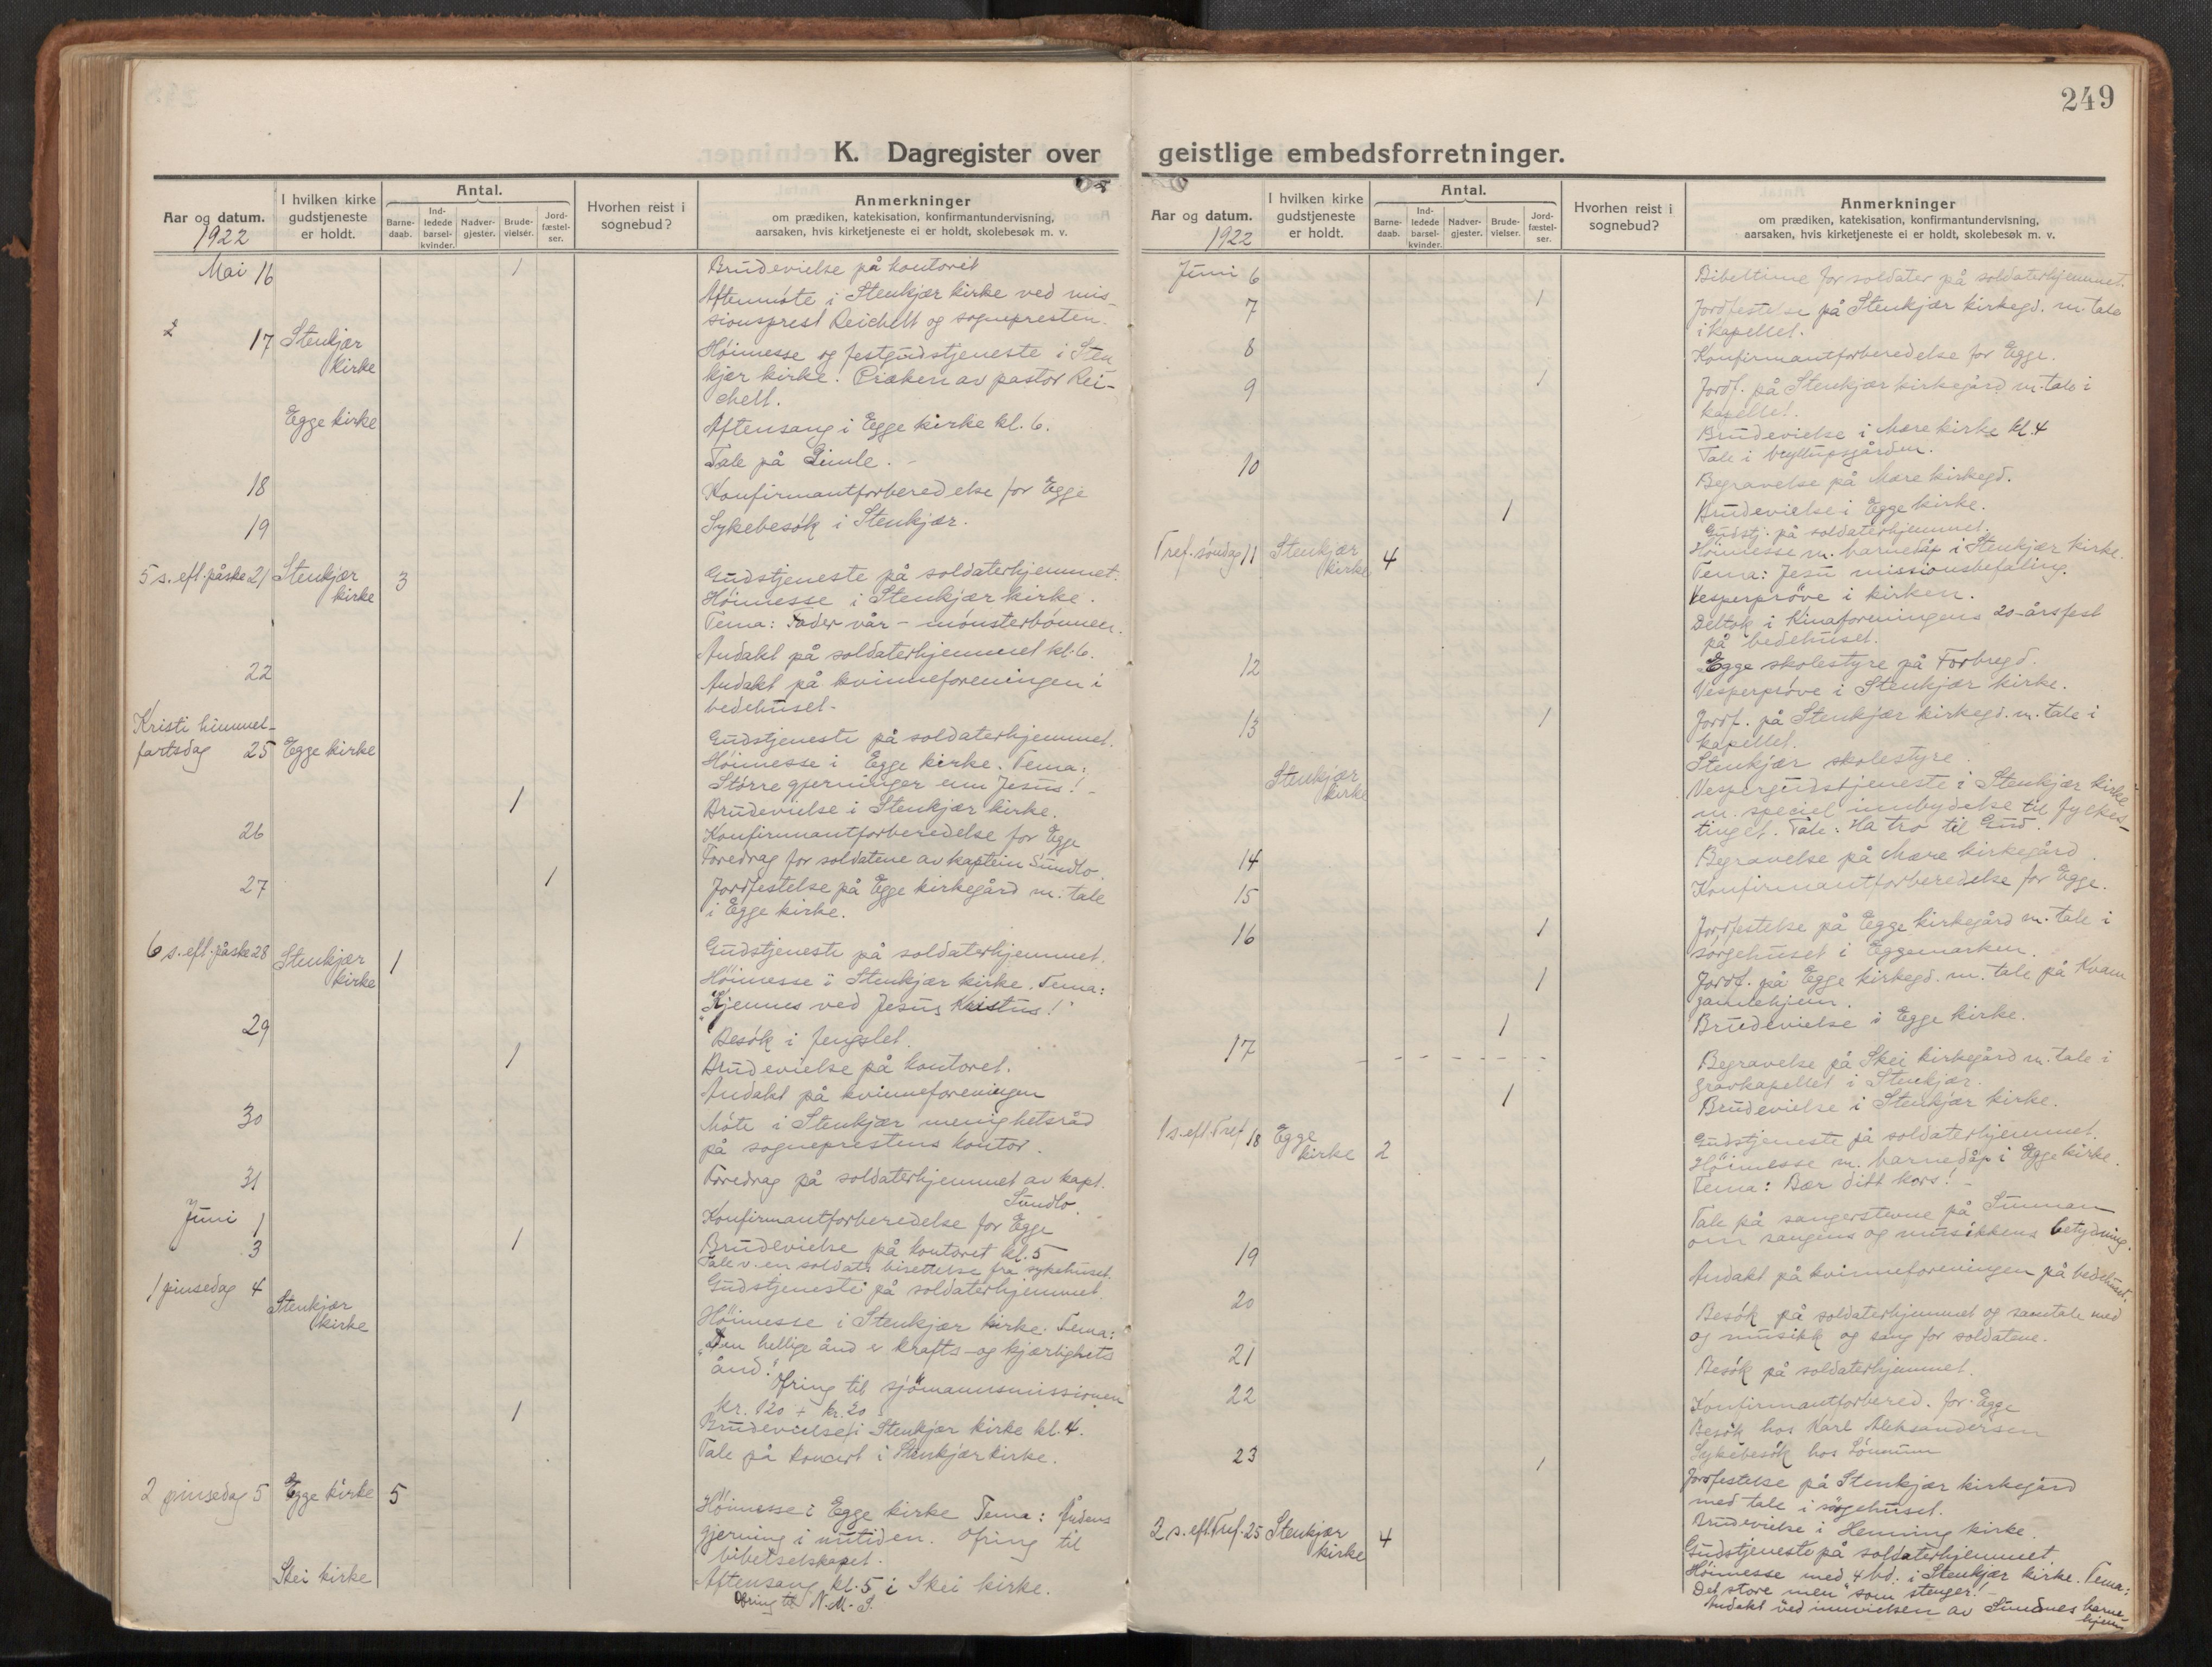 249
K. Dagregister over geistlige embedsforretninger.
Aar og datum.
1922
I hvilken kirke gudstjeneste er holdt.
Antal.
Barne-daab.
Ind-ledede barsel-kvinder.
Nadver-gjester.
Brude-vielser.
Jord-fæstel-ser.
Hvorhen reist i sognebud?
Anmerkninger
om prædiken, katekisation, konfirmantundervisning,
aarsaken, hvis kirketjeneste ei er holdt, skolebesøk m. v.
Mai 16 1 Brudevielse på kontoret
Aftenmöte i Stenkjær kirke ved mis-
sionsprest Reichelt og sognepresten.
17 Stenkjær kirke Höimesse og festgudstjeneste i Sten
kjær kirke. Præken av pastor Rei-
chelt.
Egge kirke Aftensang i Egge kirke kl. 6.
Tale på Gimle. -
18 Konfirmantforberedelse for Egge
19 Sykebesök i Stenkjær.
5 s. eft. påske 21 Stenkjær kirke 3 Gudstjeneste på soldaterhjemmet.
Höimesse i Stenkjær kirke.
Tema: Fader vår - mönsterbönnen.
Andakt på soldaterhjemmet kl. 6.
22 Andakt på kvinneforeningen i
bedehuset.
Kristi himmel-
fartsdag 25 Egge kirke Gudstjeneste på soldaterhjemmet.
Höimesse i Egge kirke. Tema:
Större gjerninger enn Jesus! -
1 Brudevielse i Stenkjær kirke.
26 Konfirmantforberedelse for Egge
Foredrag for soldatene av kaptein Sundlo.
27 1 Jordfestelse på Egge kirkegård m. tale
i Egge kirke.
6 s. eft. påske 28 Stenkjær kirke 1 Gudstjeneste på soldaterhjemmet.
Höimesse i Stenkjær kirke. Tema:
"Kjennes ved Jesus Kristus!"
29 Besök i fengslet.
1 Brudevielse på kontoret.
Andakt på kvinneforeningen
30 Möte i Stenkjær menighetsråd
på sogneprestens kontor.
31 Foredrag på soldaterhjemmet av kapt.
Sundlo.
Juni 1 Konfirmantforberedelse for Egge
3 1 Brudevielse på kontoret kl. 5
Tale v. en soldats bisettelse fra sykehuset.
1 pinsedag 4 Gudstjeneste på soldaterhjemmet.
Stenkjær kirke Höimesse i Stenkjær kirke. Tema:
"Den hellige ånd er krafts- og kjærlighets
ånd." Ofring til sjömannsmissionen
kr. 120 + kr. 20
1 Brudevielse i Stenkjær kirke kl. 4.
Tale på koncert i Stenkjær kirke.
2 pinsedag 5 Egge kirke 5 Höimesse i Egge kirke Tema: Åndens
gjerning i nutiden. Ofring til
bibelselskapet.
Skei kirke Aftensang kl. 5 i Skei kirke.
Ofring til N.M.S.
Aar og datum.
1922
I hvilken kirke gudstjeneste er holdt.
Antal.
Barne-daab.
Ind-ledede barsel-kvinder.
Nadver-gjester.
Brude-vielser.
Jord-fæstel-ser.
Hvorhen reist i sognebud?
Anmerkninger
om prædiken, katekisation, konfirmantundervisning,
aarsaken, hvis kirketjeneste ei er holdt, skolebesøk m. v.
Juni 6 Bibeltime for soldater på soldaterhjemmet.
7 1 Jordfestelse på Stenkjær kirkegd. m. tale
i kapellet.
8 Konfirmantforberedelse for Egge.
9 1 Jordf. på Stenkjær kirkegård m. tale i
kapellet.
Brudevielse i Mære kirke kl. 4
Tale i bryllupsgården.
10 Begravelse på Mære kirkegd.
1 Brudevielse i Egge kirke.
Gudstj. på soldaterhjemmet.
Tref. söndag 11 Stenkjær kirke 4 Höimesse m. barnedåp i Stenkjær kirke.
Tema: Jesu missionsbefaling.
Vesperpröve i kirken.
Deltok i Kinaforeningens 20-årsfest
på bedehuset.
12 Egge skolestyre på Forbregd.
Vesperpröve i Stenkjær kirke.
13 1 Jordf. på Stenkjær kirkegd. m. tale i
kapellet.
Stenkjær skolestyre.
Stenkjær kirke Vespergudstjeneste i Stenkjær kirke
m. speciel innbydelse til fylkes-
tinget. Tale: Ha tro til Gud.
14 Begravelse på Mære kirkegård.
15 Konfirmantforberedelse for Egge.
16 1 Jordfestelse på Egge kirkegård m. tale i
sörgehuset i Eggemarken.
1 Jordf. på Egge kirkegd. m. tale på Kvam
gamlehjem.
1 Brudevielse i Egge kirke.
17 - - - - - - Begravelse på Skei kirkegård m. tale i
gravkapellet i Stenkjær.
1 Brudevielse i Stenkjær kirke.
1 s. eft. Tref. 18 Egge kirke 2 Gudstjeneste på soldaterhjemmet.
Höimesse m. barnedåp i Egge kirke.
Tema: Bær ditt kors! -
Tale på sangerstevne på
om sangens og musikkens betydning.
19 Andakt på kvinneforeningen på bedehuset.
20 Besök på soldaterhjemmet og samtale med
og musikk og sang for soldatene.
21 Besök på soldaterhjemmet.
22 Konfirmantforbered. for Egge
Besök hos Karl Aleksandersen
Sykebesök hos
23 1 Jordfestelse på Stenkjær kirkegård
med tale i sörgehuset.
Brudevielse i Henning kirke.
2 s. eft. Tref. 25 Stenkjær kirke 4 Gudstjeneste på soldaterhjemmet.
Höimesse med 4 bd. i Stenkjær kirke. Tema:
Det store "men" som stenger! -
Andakt ved innvielsen av Sundnes barne-
hjem